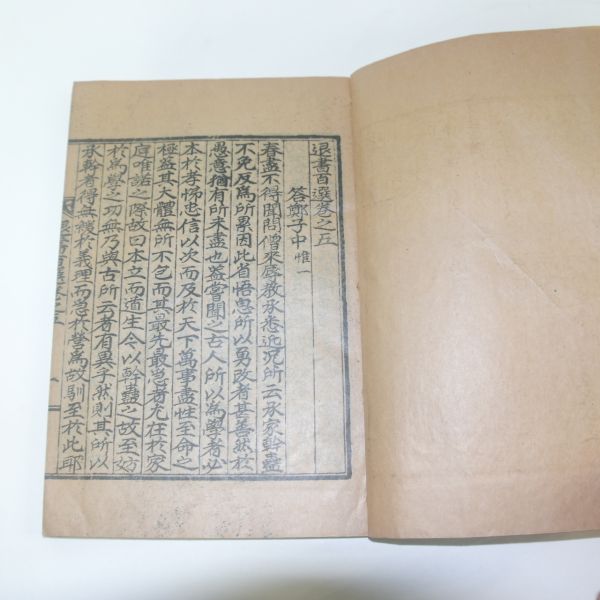 退書百選卷之五
答鄭子中 惟一
春盡不得聞問僧來辱敎承悉近況所云承家幹蠱
不免反爲所累因此省悟思所以勇改者甚善然於
愚意猶有所未盡也蓋嘗聞之古人所以爲學者必
本於孝悌忠信以次而及於天下萬事盡性至命之
極蓋其大體無所不包而其最先最急者尤在於家
庭唯諾之際故曰本立而道生今以幹蠱之故至妨
於爲學之功無乃與古所云者有異乎然則其所以
承幹者得無緩於義理而急於營爲故馴至於此耶